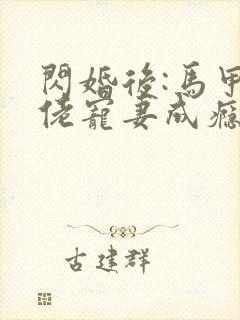 閃婚後:馬甲
佬寵妻成癮
古建群